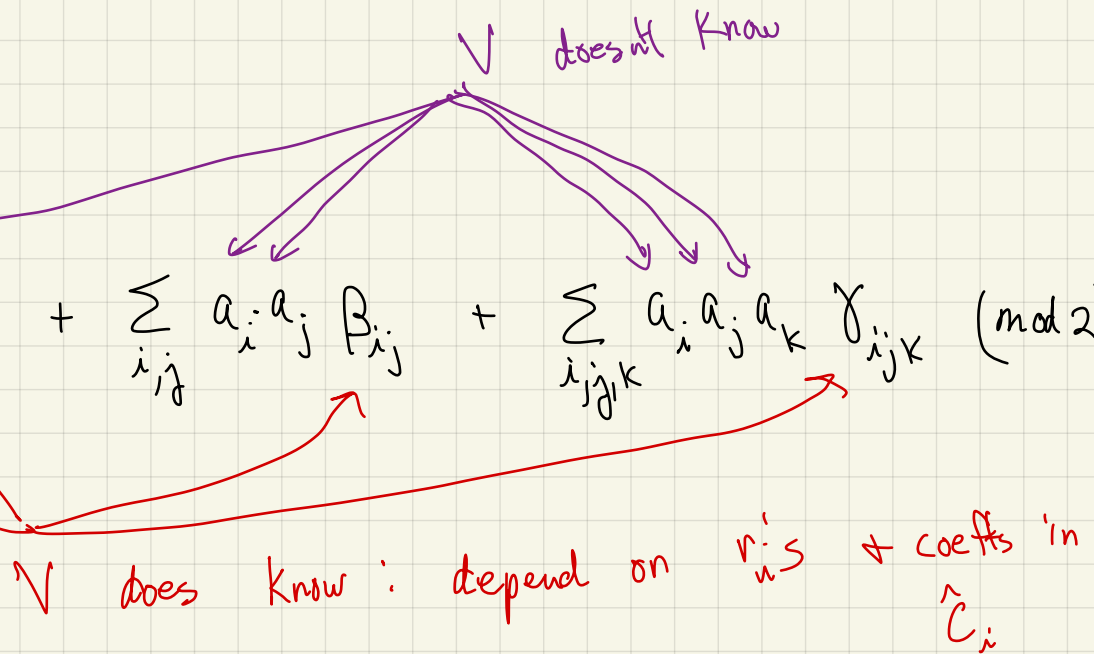 V doesn't know
+ ∑_{i,j} a_i · a_j β_{ij} + ∑_{i,j,k} a_i a_j a_k γ_{ijk} (mod 2
V does know : depend on r_i's + coeffs in
Ĉ_i